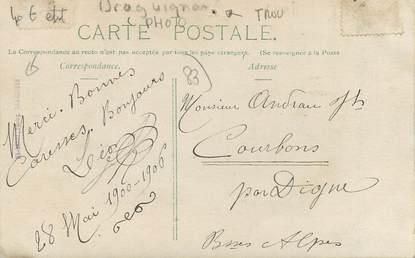 Draguignan
4e € etit
C PHOTO
* TROU
CARTE POSTALE.
La Correspondance au recto n'est pas acceptée par tous les pays étrangers. (Se renseigner à la Poste
Correspondance.
Adresse
6
83
Merci. Bonnes
Caresses. Bonjours
Léo
28 Mai 1900-1906
Monsieur Andrau
Courbons
par Digne
Bses Alpes